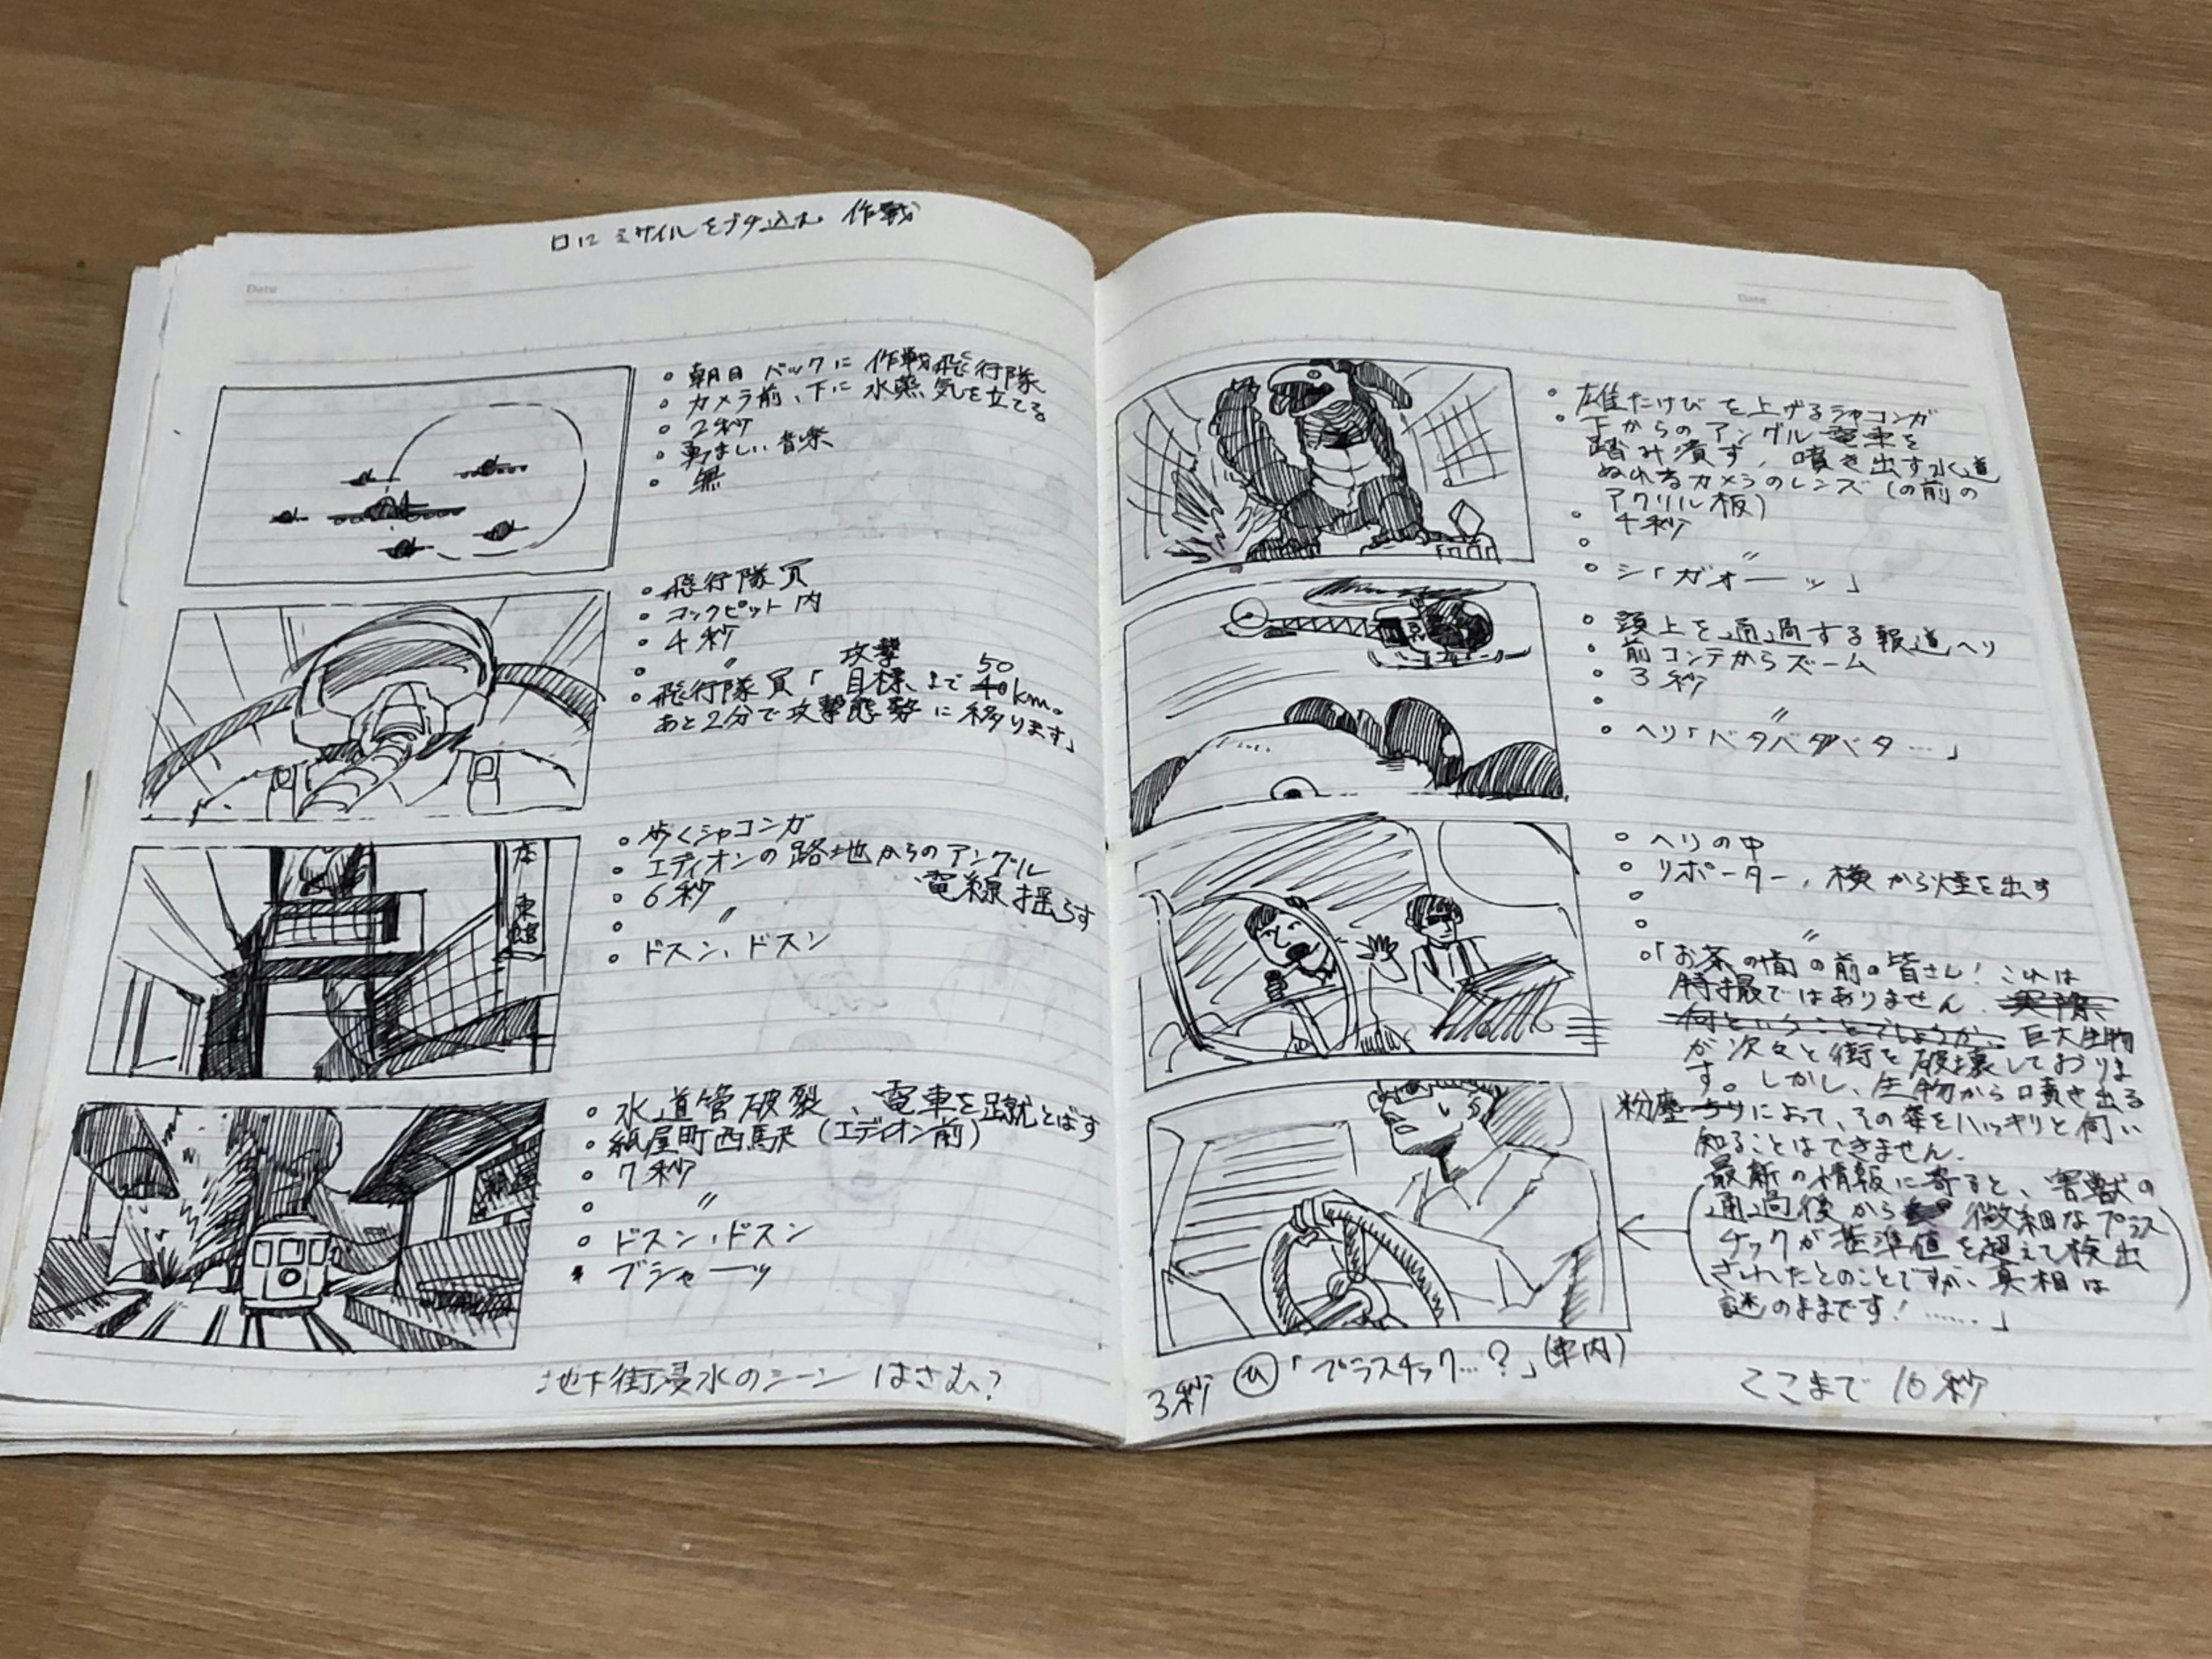 口にミサイルをブチ込む 作戦
Date
朝日 バックに 作戦飛行隊
カメラ前、下に 水蒸気を立てる
2秒
勇ましい音楽
無
飛行隊員
コックピット内
4秒
〃
攻撃
50
飛行隊員「目標まで 40km。
あと2分で攻撃態勢に移ります」
歩くシャコンガ
エディオンの路地からのアングル
6秒
電線揺らす
〃
ドスン、ドスン
本
東
館
水道管破裂、電車を蹴とばす
紙屋町西駅 (エディオン前)
7秒
〃
ドスン、ドスン
ブシャーッ
地下街浸水のシーン はさむ?
Date
雄たけびを上げるシャコンガ
下からのアングル 電車を
踏み潰す、噴き出す水道
ぬれるカメラのレンズ (の前の
アクリル板)
4秒
〃
シ「ガオーッ」
頭上を通過する報道ヘリ
前コンテからズーム
3秒
〃
ヘリ「バタバタバタ…」
ヘリの中
リポーター、横から煙を出す
〃
「お茶の間の前の皆さん! これは
特撮ではありません。実際
何ということでしょうか、巨大生物
が次々と街を破壊しておりま
す。しかし、生物から噴き出る
粉塵 によって、その姿をハッキリと伺い
知ることはできません。
最新の情報に寄ると、害獣の
通過後から 微細なプラス
チックが基準値を超えて検出
されたとのことですが、真相は
謎のままです!……」
3秒 ひ「プラスチック…?」(車内)
ここまで 10秒